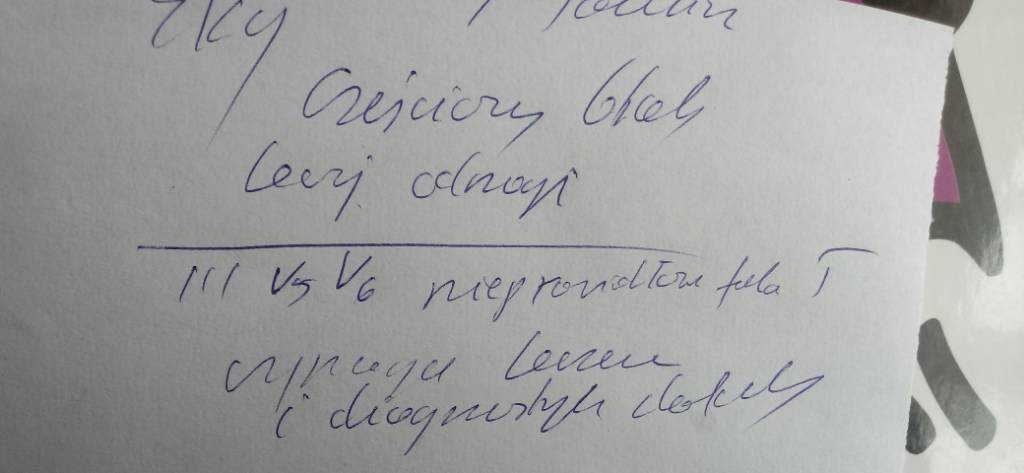 EKG
Częściowy blok
lewej odnogi
III V5 V6 nieprawidłowa fala T
wymaga leczen
i diagnostyk